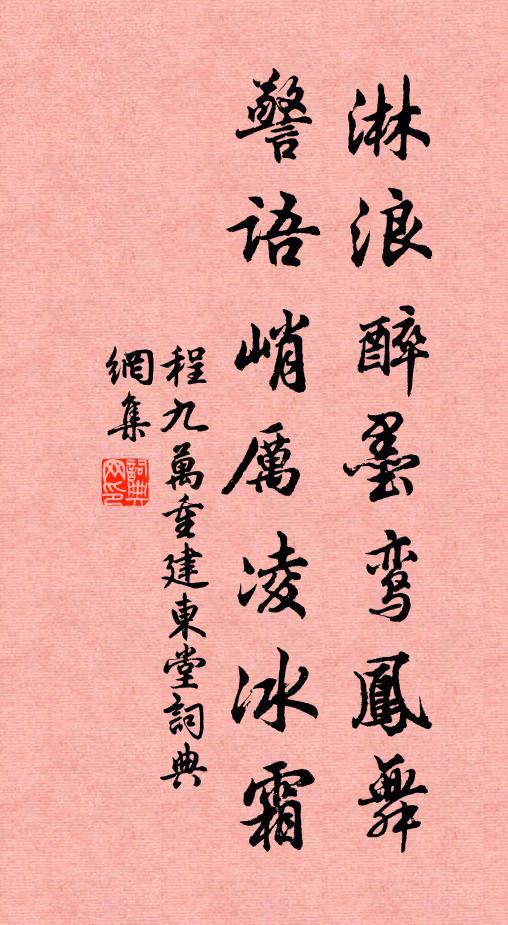 淋浪醉墨鸾鳳舞
警語峭厲凌冰霜
程九萬重建東堂詞典
網集
詞典网印